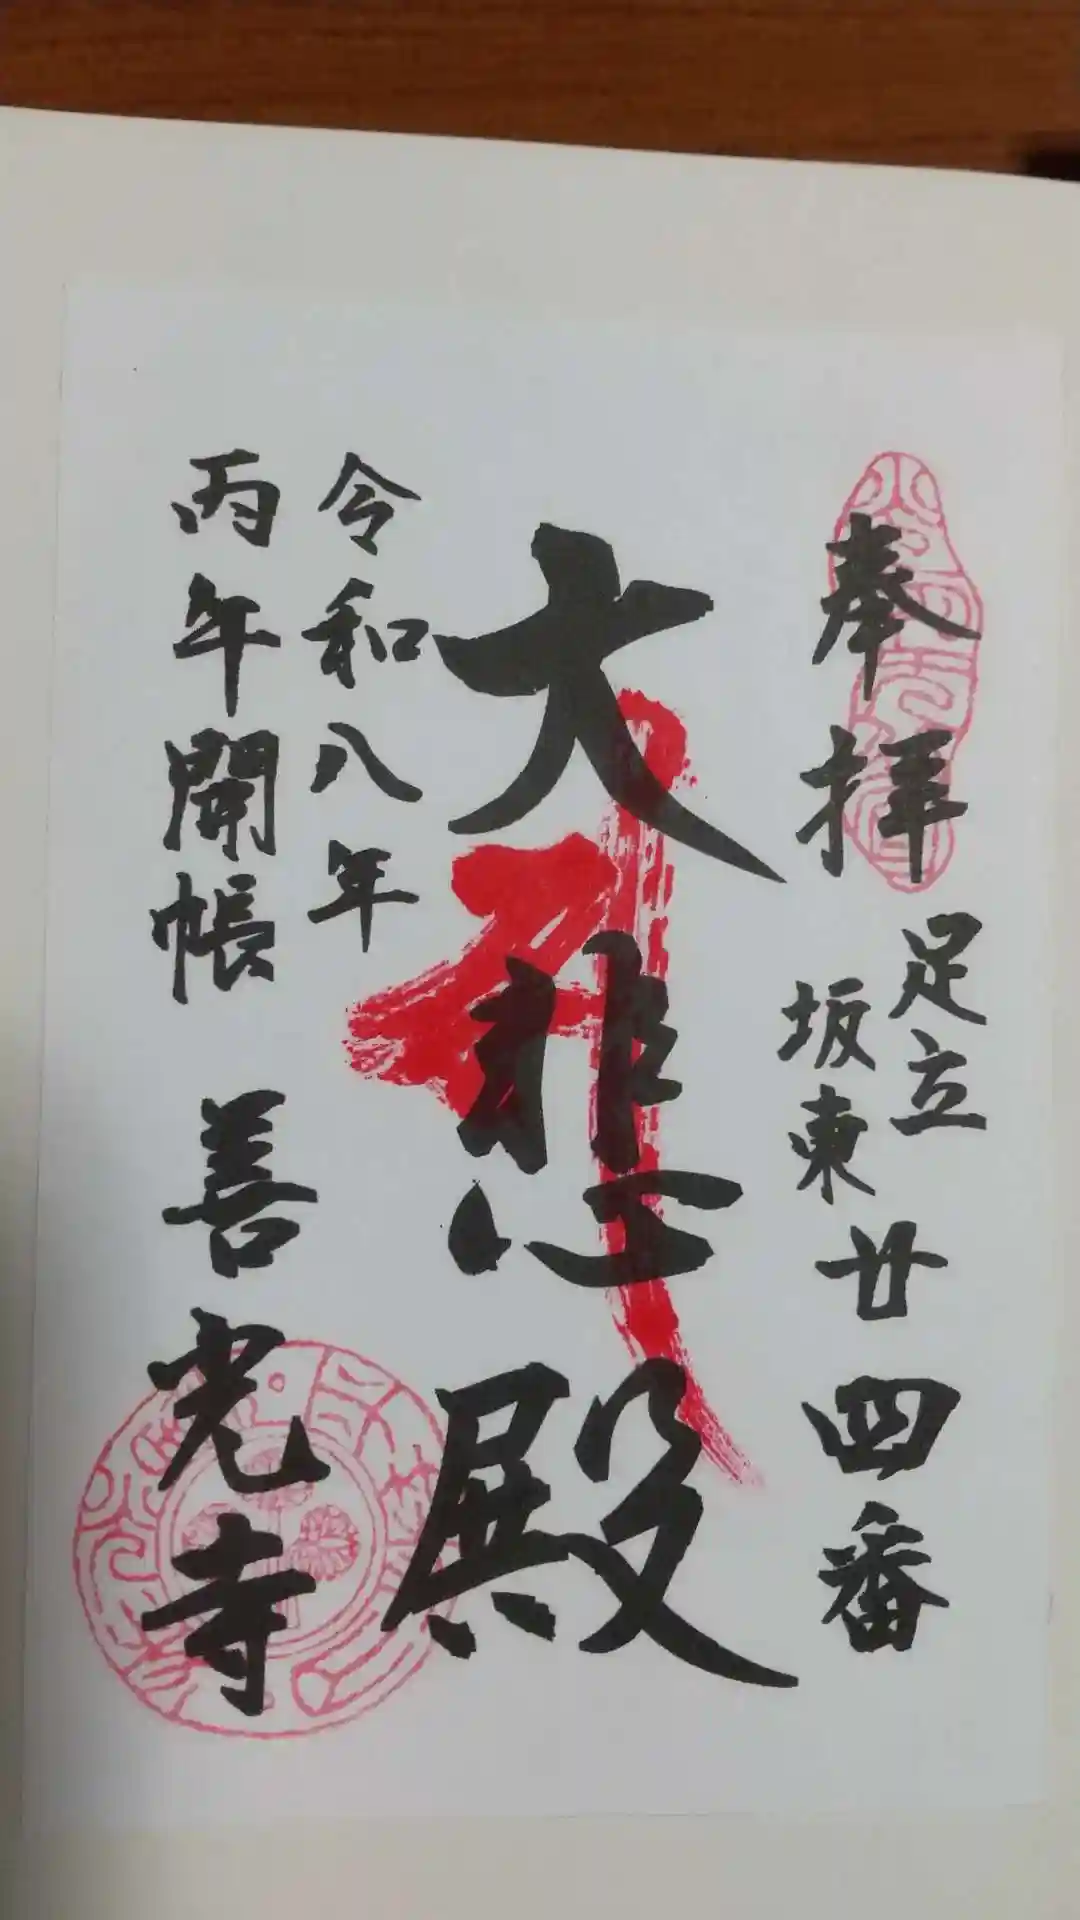 奉拝
足立
坂東
廿四番
大悲殿
令和八年
丙午開帳 善光寺